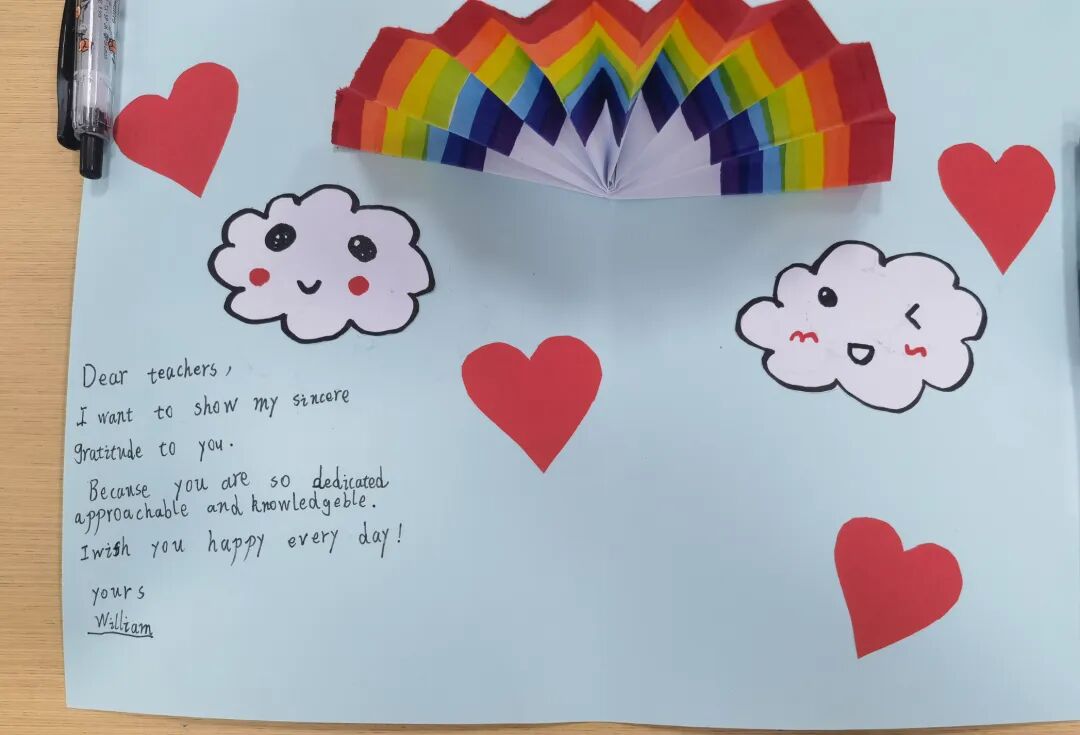 Dear teachers,
I want to show my sincere
gratitude to you.
Because you are so dedicated
approachable and knowledgeble.
I wish you happy every day!
yours
William